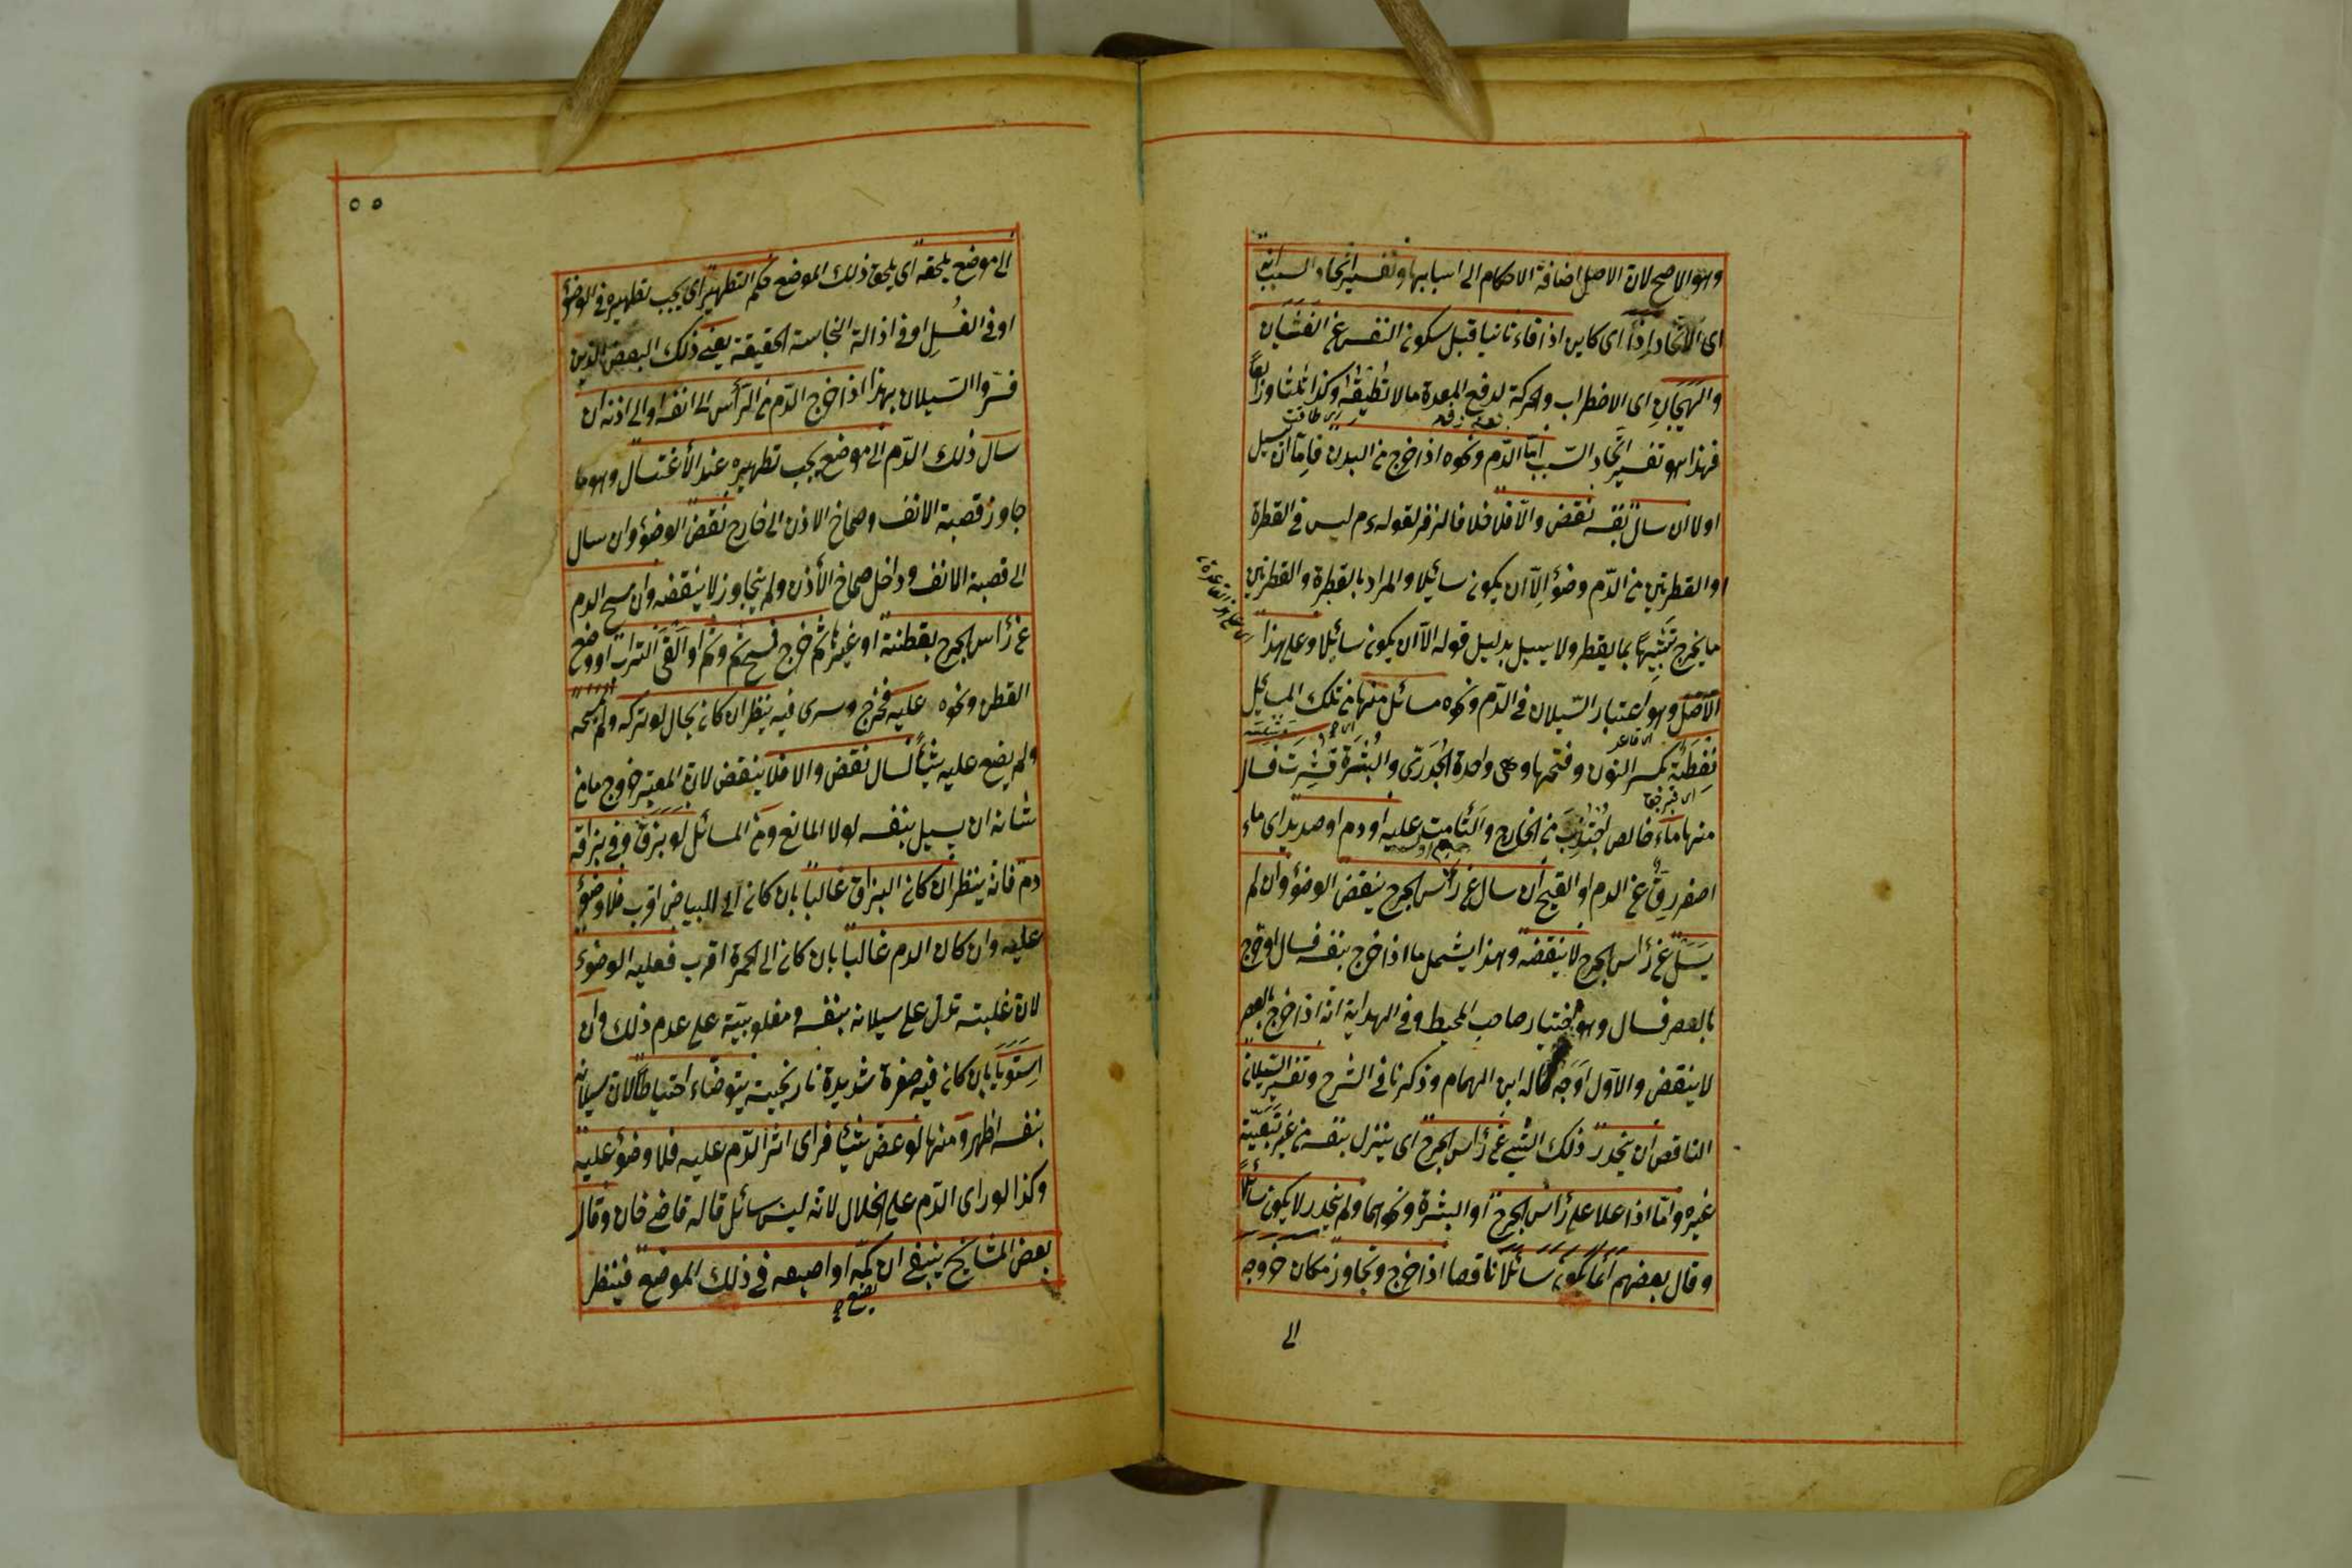 وهو الاصح لان الاصل اضافة الاحكام الى اسبابها وتفسير اتحاد السبب انه
اى الاتحاد اذا اى كاين اذا قاء ثانيا قبل سكون النفس عن الغثيان
والهيجان اى الاضطراب والحركة لدفع المعدة ما لا تطيقه وكذا ثلثا ورابعا
فهذا هو تفسير اتحاد السبب اما الدم ونحوه اذا خرج من البدن فاما ان يسيل
اولا ان سال بنفسه نقض والا فلا خلافا لزفر لقوله عم ليس فى القطرة
او القطرتين من الدم وضوء الا ان يكون سائلا والمراد بالقطرة والقطرتين
ما يخرج تشبيها بما يقطر ولا يسيل بدليل قوله الا ان يكون سائلا وعلى هذا
الاصل وهو اعتبار السيلان فى الدم ونحوه مسائل منها من تلك المسائل
نفطة بكسر النون وفتحها وهى واحدة الجدرى والبثرة قشرت فسال
منها ماء خالص اجتذب من الخارج والتأمت عليه او دم او صديد اى ماء
اصفر رق عن الدم او القيح ان سال عن رأس الجرح ينقض الوضوء وان لم
يسل عن رأس الجرح لا ينقضه وهذا يشمل ما اذا خرج بنفسه فسال او خرج
بالعصر فسال وهو اختيار صاحب المحيط وفى الهداية انه اذا خرج بالعصر
لا ينقض والاول اوجه قاله ابن الهمام وذكرنا فى الشرح وتفسير السيلان
الناقض ان ينحدر ذلك الشئ عن رأس الجرح اى ينزل بنفسه من غير تبعية
غيره واما اذا علا على رأس الجرح او البثرة ونحوهما ولم ينحدر لا يكون سائلا
وقال بعضهم انما يكون سائلا ناقضا اذا خرج وتجاوز مكان خروجه
الى
٥٥
الى موضع يلحقه اى يلحق ذلك الموضع حكم التطهير اى يجب تطهيره فى الوضوء
او فى الغسل او فى ازالة النجاسة الحقيقة يعنى ذلك البعض الذين
فسروا السيلان بهذا اذا خرج الدم من الرأس الى انفه او الى اذنه ان
سال ذلك الدم الى موضع يجب تطهيره عند الاغتسال وهو ما
جاوز قصبة الانف وصماخ الاذن الى خارج نقض الوضوء وان سال
الى قصبة الانف وداخل صماخ الاذن ولم يتجاوز لا ينقضه وان مسح الدم
عن رأس الجرح بقطنة او غيرها ثم خرج فمسح ثم وثم او القى التراب او وضع
القطن ونحوه عليه فخرج وسرى فيه ينظر ان كان بحال لو تركه ولم يمسحه
ولم يضع عليه شيأ لسال نقض والا فلا ينقض لان المعتبر خروج ما من
شانه ان يسيل بنفسه لولا المانع ومن المسائل لو بزق وفى بزاقه
دم فانه ينظر ان كان البزاق غالبا بان كان الى البياض اقرب فلا وضوء
عليه وان كان الدم غالبا بان كان الى الحمرة اقرب فعليه الوضوء
لان غلبته تدل على سيلانه بنفسه ومغلوبيته على عدم ذلك وان
استويا بان كان فيه صفرة شديدة نارنجية يتوضاء احتياطا لان سيلانه
بنفسه اظهر ومنها لو عض شيأ فرأى اثر الدم عليه فلا وضوء عليه
وكذا لو راى الدم على الخلال لانه ليس سائل قاله قاضى خان وقال
بعض المشايخ ينبغى ان كمه او اصبعه فى ذلك الموضع فينظر
يضع